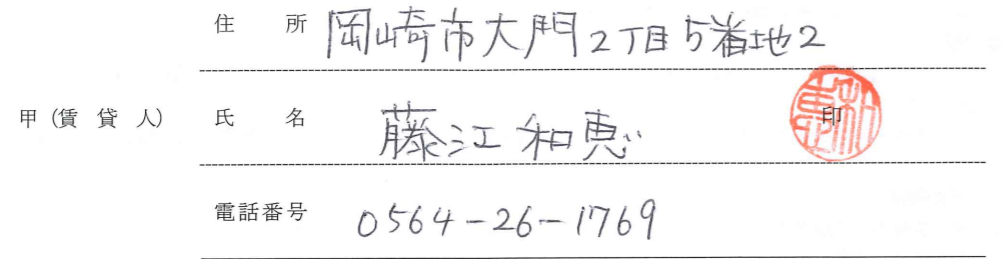 住 所 岡崎市大門2丁目5番地2
甲（賃 貸 人） 氏 名 藤江和恵 印
電話番号 0564-26-1769